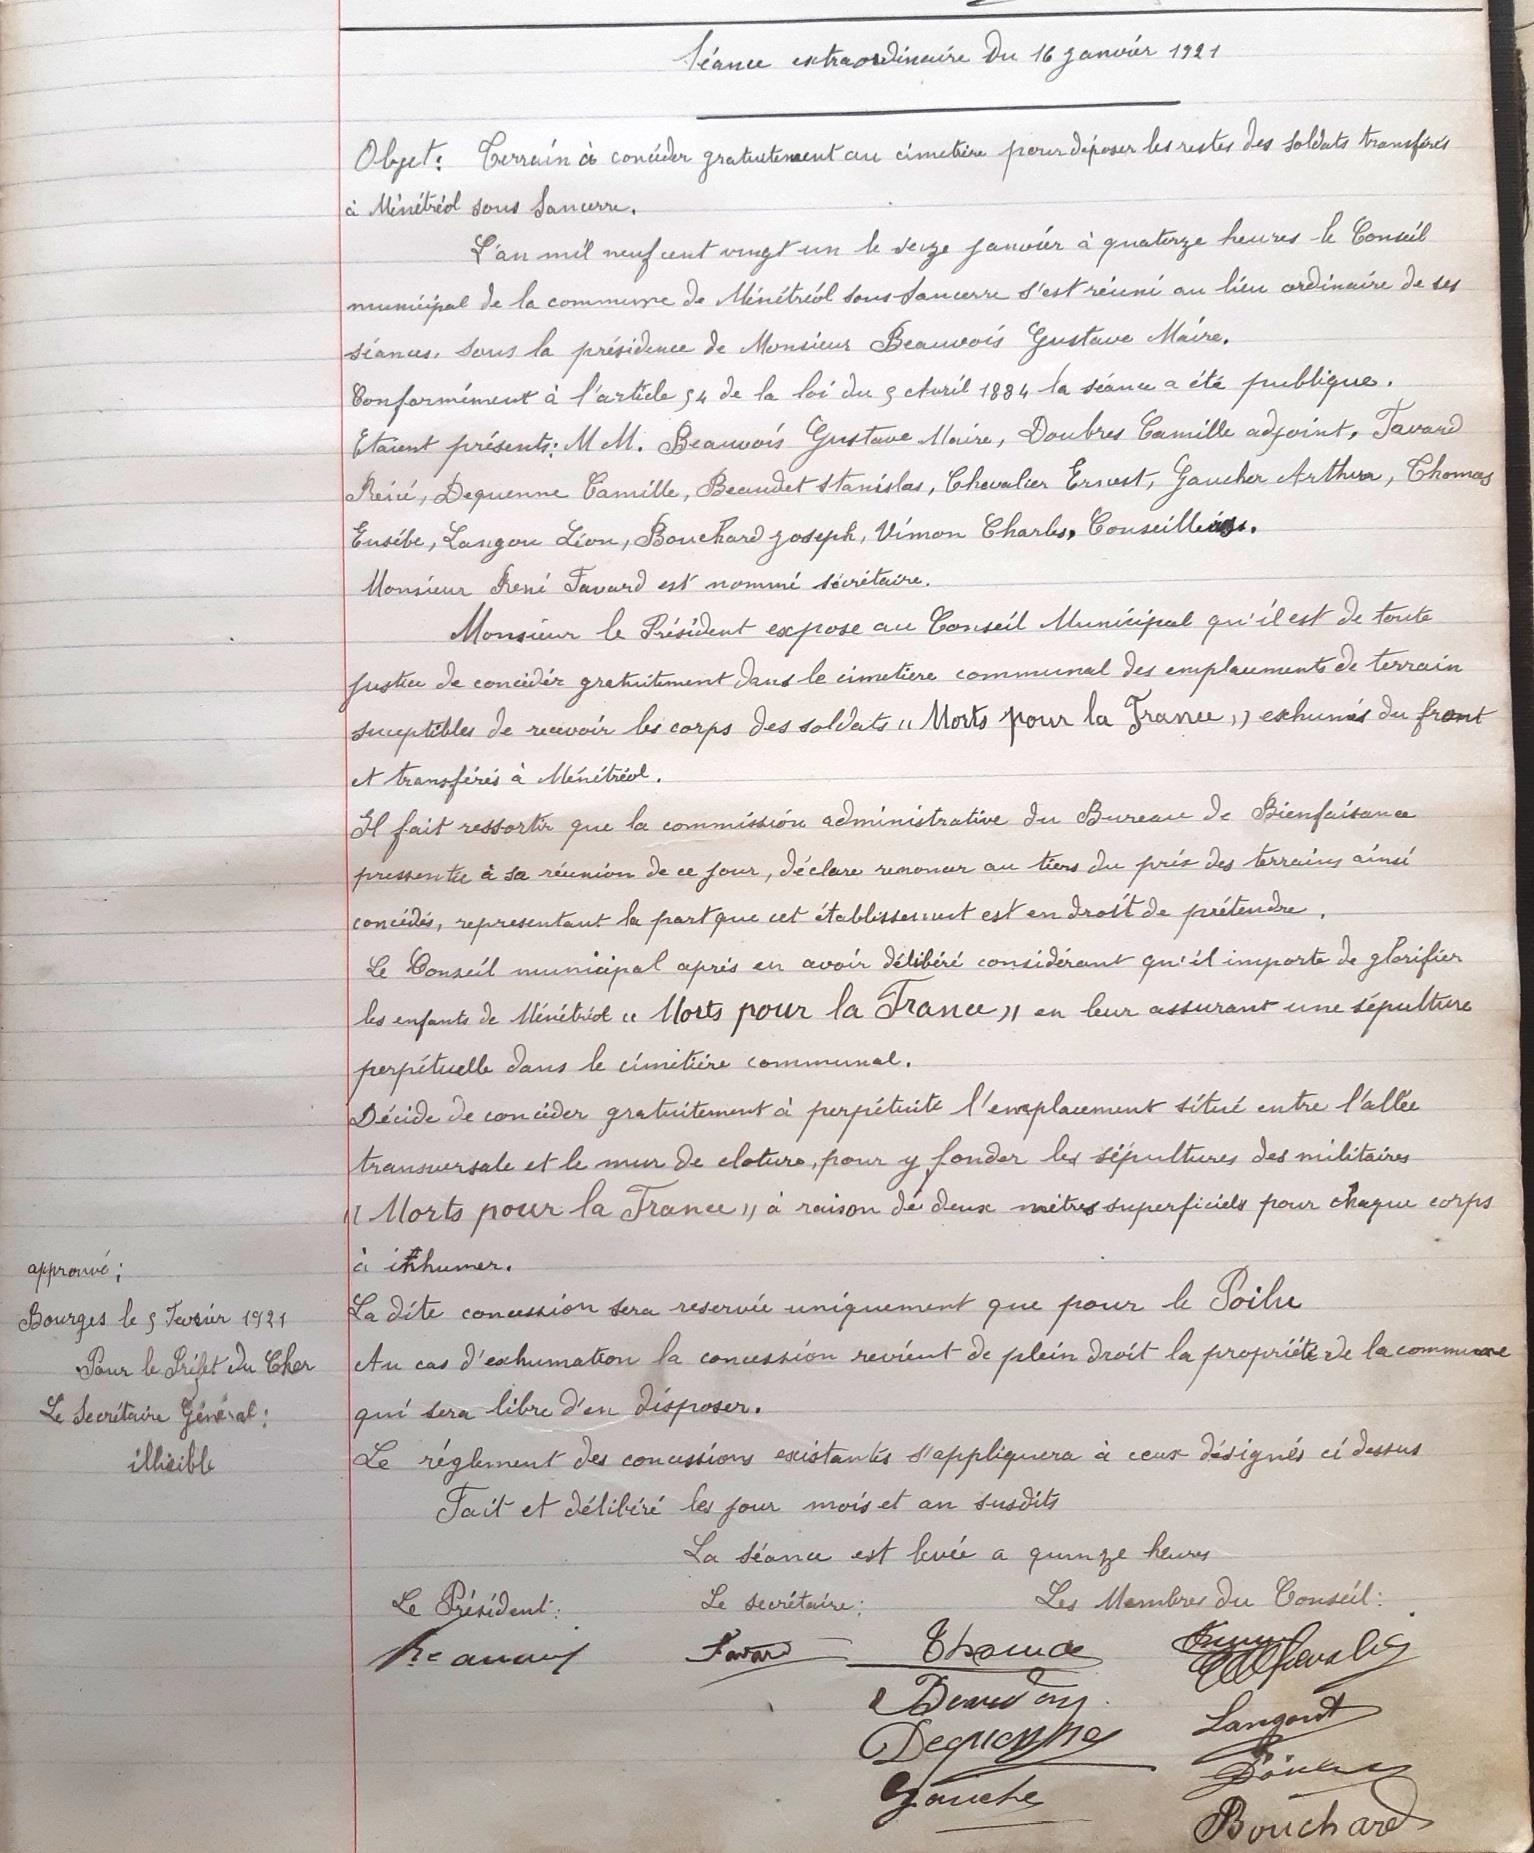 Séance extraordinaire du 16 janvier 1921
Objet: Terrain à concéder gratuitement au cimetière pour déposer les restes des soldats transférés
à Ménétréol sous Sancerre.
L'an mil neuf cent vingt un le seize janvier à quatorze heures le Conseil
municipal de la commune de Ménétréol sous Sancerre s'est réuni au lieu ordinaire de ses
séances, sous la présidence de Monsieur Beauvois Gustave Maire.
Conformément à l'article 54 de la loi du 5 Avril 1884 la séance a été publique.
Etaient présents: M M. Beauvois Gustave Maire, Doubres Camille adjoint, Favard
René, Dequenne Camille, Beaudet Stanislas, Chevalier Ernest, Gaucher Arthur, Thomas
Eusèbe, Langou Léon, Bouchard Joseph, Vimon Charles, Conseillers.
Monsieur René Favard est nommé sécrétaire.
Monsieur le Président expose au Conseil Municipal qu'il est de toute
justice de concéder gratuitement dans le cimetière communal des emplacements de terrain
suceptibles de recevoir les corps des soldats "Morts pour la France" exhumés du front
et transférés à Ménétréol.
Il fait ressortir que la commission administrative du Bureau de Bienfaisance
pressentie à sa réunion de ce jour, déclare renoncer au tiers du prix des terrains ainsi
concédés, representant la part que cet établissement est en droit de prétendre.
Le Conseil municipal après en avoir délibéré considérant qu'il importe de glorifier
les enfants de Ménétréol "Morts pour la France" en leur assurant une sépulture
perpétuelle dans le cimetière communal.
Décide de concéder gratuitement à perpétuité l'emplacement situé entre l'allée
transversale et le mur de cloture, pour y fonder les sépultures des militaires
"Morts pour la France" à raison de deux mètres superficiels pour chaque corps
à inhumer.
La dite concession sera reservée uniquement que pour le Poilu
Au cas d'exhumation la concession revient de plein droit la propriété de la commune
qui sera libre d'en disposer.
Le réglement des concessions existantes s'appliquera à ceux désignés ci dessus
Fait et délibéré les jour mois et an susdits
La séance est levée a quinze heures
approuvé;
Bourges le 5 Fevrier 1921
Pour le Préfet du Cher
Le Secrétaire Général:
illisible
Le Président: Le secrétaire: Les Membres du Conseil:
Favard Thomas Chevalier
Dequenne Langout
Gaucher
Bouchard